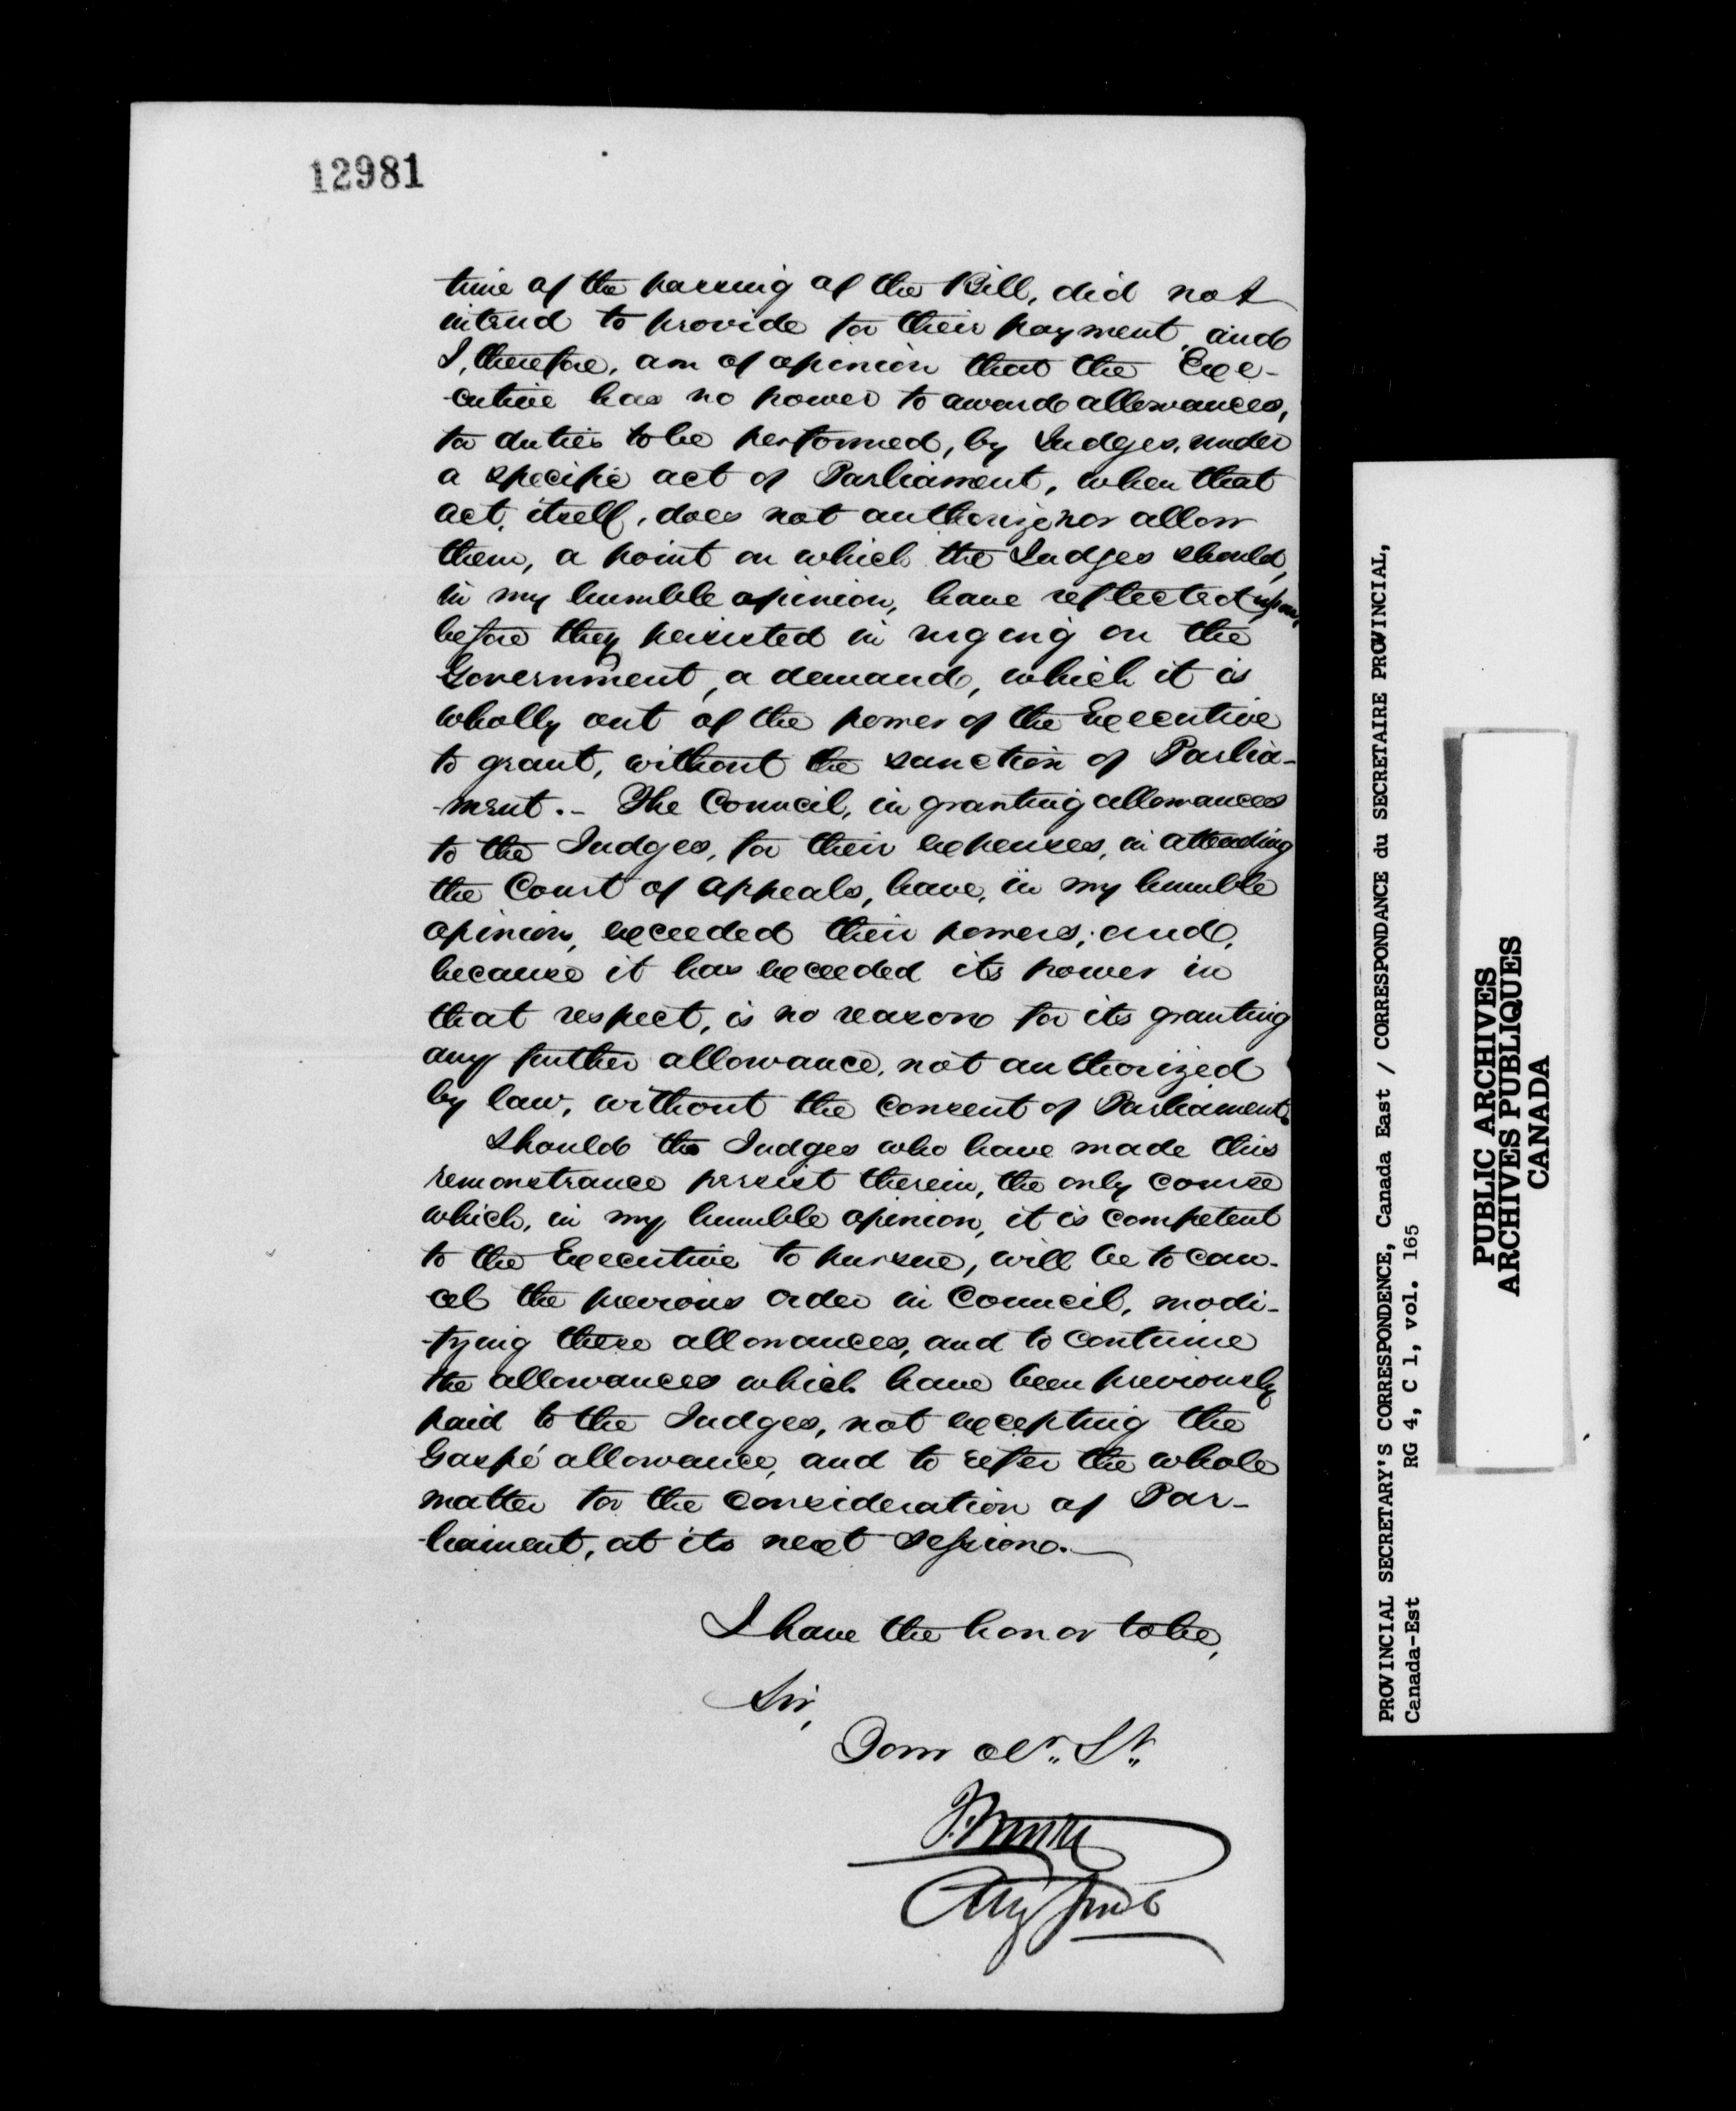 12981
time of the passing of the Bill, did not
intend to provide for their payment, and
I, therefore, am of opinion that the Exe-
-cutive has no power to award allowances,
for duties to be performed, by Judges, under
a specific act of Parliament, when that
act, itself, does not authorize nor allow
them, a point on which the Judges should,
in my humble opinion, have reflected upon,
before they persisted in urging on the
Government, a demand, which it is
wholly out of the power of the Executive
to grant, without the sanction of Parlia-
-ment.- The Council, in granting allowances
to the Judges, for their expenses, in attending
the Court of Appeals, have, in my humble
opinion, exceeded their powers; and,
because it has exceeded its power in
that respect, is no reason for its granting
any further allowance, not authorized
by law, without the consent of Parliament.
Should the Judges who have made this
remonstrance persist therein, the only course
which, in my humble opinion, it is competent
to the Executive to pursue, will be to can-
cel the previous order in Council, modi-
-fying these allowances, and to continue
the allowances which have been previously
paid to the Judges, not excepting the
Gaspé allowance, and to refer the whole
matter for the consideration of Par-
-liament, at its next Session.
I have the honor to be,
Sir,
Your St.
Atty
PROVINCIAL SECRETARY'S CORRESPONDENCE, Canada East / CORRESPONDANCE du SECRETAIRE PROVINCIAL,
Canada-Est RG 4, C 1, vol. 165
PUBLIC ARCHIVES
ARCHIVES PUBLIQUES
CANADA